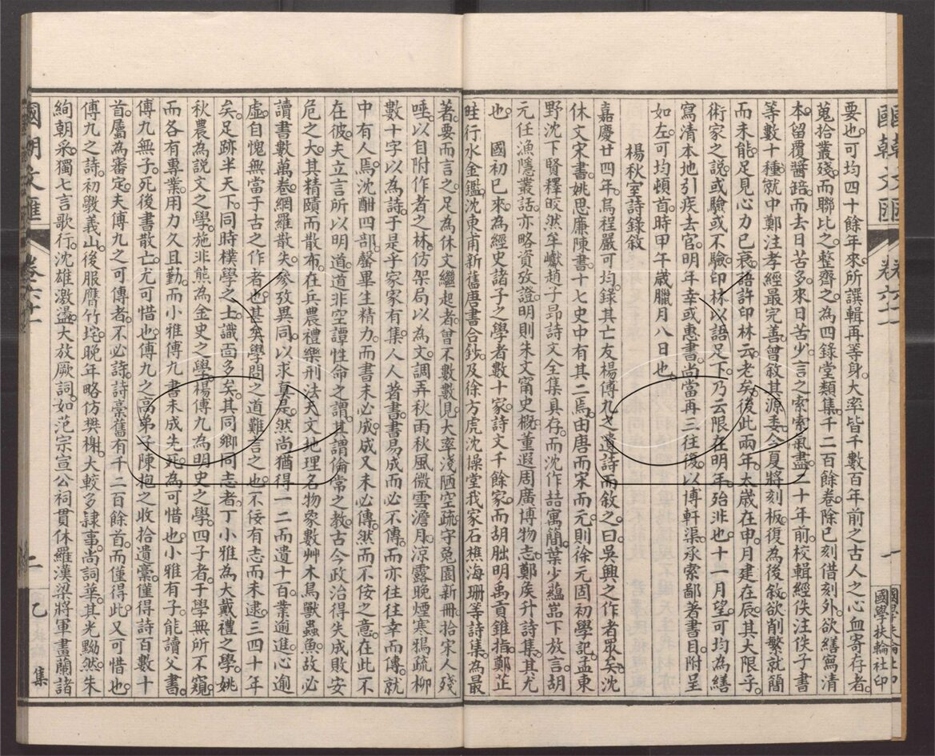 國朝文匯 卷六十一 一 國學扶輪社印
要也可均四十餘年來所譔輯再等身大率皆千數百年前之古人之心血寄存者
蒐拾叢殘而聯比之整齊之為四錄堂類集千二百餘卷除已刻借刻外欲繕寫清
本留覆醬瓿而去日苦多來日苦少言之索索氣盡二十年前校輯經佚注佚子書
等數十種就中鄭注孝經最完善曾敘其源委今夏將刻板復為後敘欲削繁就簡
而未能足見心力已衰語許印林云老矣後此兩年太歲在申月建在辰其大限乎
術家之說或驗或不驗印林以語足下乃云限在明年殆非也十一月望可均為繕
寫清本地引疾去官明年幸或惠書尚當再三往復以博軒渠承索鄙著書目附呈
如左可均頓首時甲午歲臘月八日也
楊秋室詩錄敘
嘉慶廿四年烏程嚴可均錄其亡友楊傅九之遺詩而敘之曰吳興之作者眾矣沈
休文宋書姚思廉陳書十七史中有其二焉由唐而宋而元則徐元固初學記孟東
野沈下賢釋皎然牟巘趙子昂詩文全集具存而沈作詰寓簡葉少蘊嵓下放言胡
元任漁隱叢話亦略資攷證明則朱文甯史概董遐周廣博物志鄭矦升詩集其尤
也 國初已來為經史諸子之學者數十家詩文千餘家而胡朏明禹貢錐指鄭芷
畦行水金鑑沈東甫新舊唐書合鈔及徐方虎沈操堂我家石樵海珊等詩集為最
著要而言之足為休文繼起者曾不數數見大率淺陋空疏守兔園新冊拾宋人殘
唾以自附作者之林仿架局以為文調弄秋雨秋風微雲澹月涼露晚煙寒鴉疏柳
數十字以為詩于是乎家家有集人人著書書易成而必不傳而亦往往幸而傳就
中有人焉沈酣四部罄畢生精力而書未必成成又未必傳然而不佞之意在此不
在彼夫立言所以明道道非空譚性命之謂其謂倫常之教古今政治得失成敗安
危之大其精賾而散布在兵農禮樂刑法天文地理名物象數艸木鳥獸蟲魚故必
讀書數萬卷網羅散失參攷異同以求真是然尚猶得一二而遺十百業逾進心逾
虛自愧無當于古之作者也甚矣學問之道難言之也不佞有志而未逮三四十年
矣足跡半天下同時樸學之士識面多矣其同鄉同志者丁小雅為大戴禮之學姚
秋農為說文之學施非熊為金史之學楊傅九為明史之學四子者于學無所不窺
而各有專業用力久且勤而小雅傅九書未成先死為可惜也小雅有子能讀父書
傅九無子死後書散亡尤可惜也傅九之高弟子陳抱之收拾遺稾僅得詩百數十
首屬為審定夫傅九之可傳者不必詩詩稾舊有千二百餘首而僅得此又可惜也
傅九之詩初斆義山後服膺竹垞晚年略仿樊榭大較多隸事尚詞華其光黝然朱
絢朝采獨七言歌行沈雄激盪大放厥詞如范宗宣公祠貫休羅漢梁將軍畫蘭諸
國朝文匯 卷六十一 二 乙集